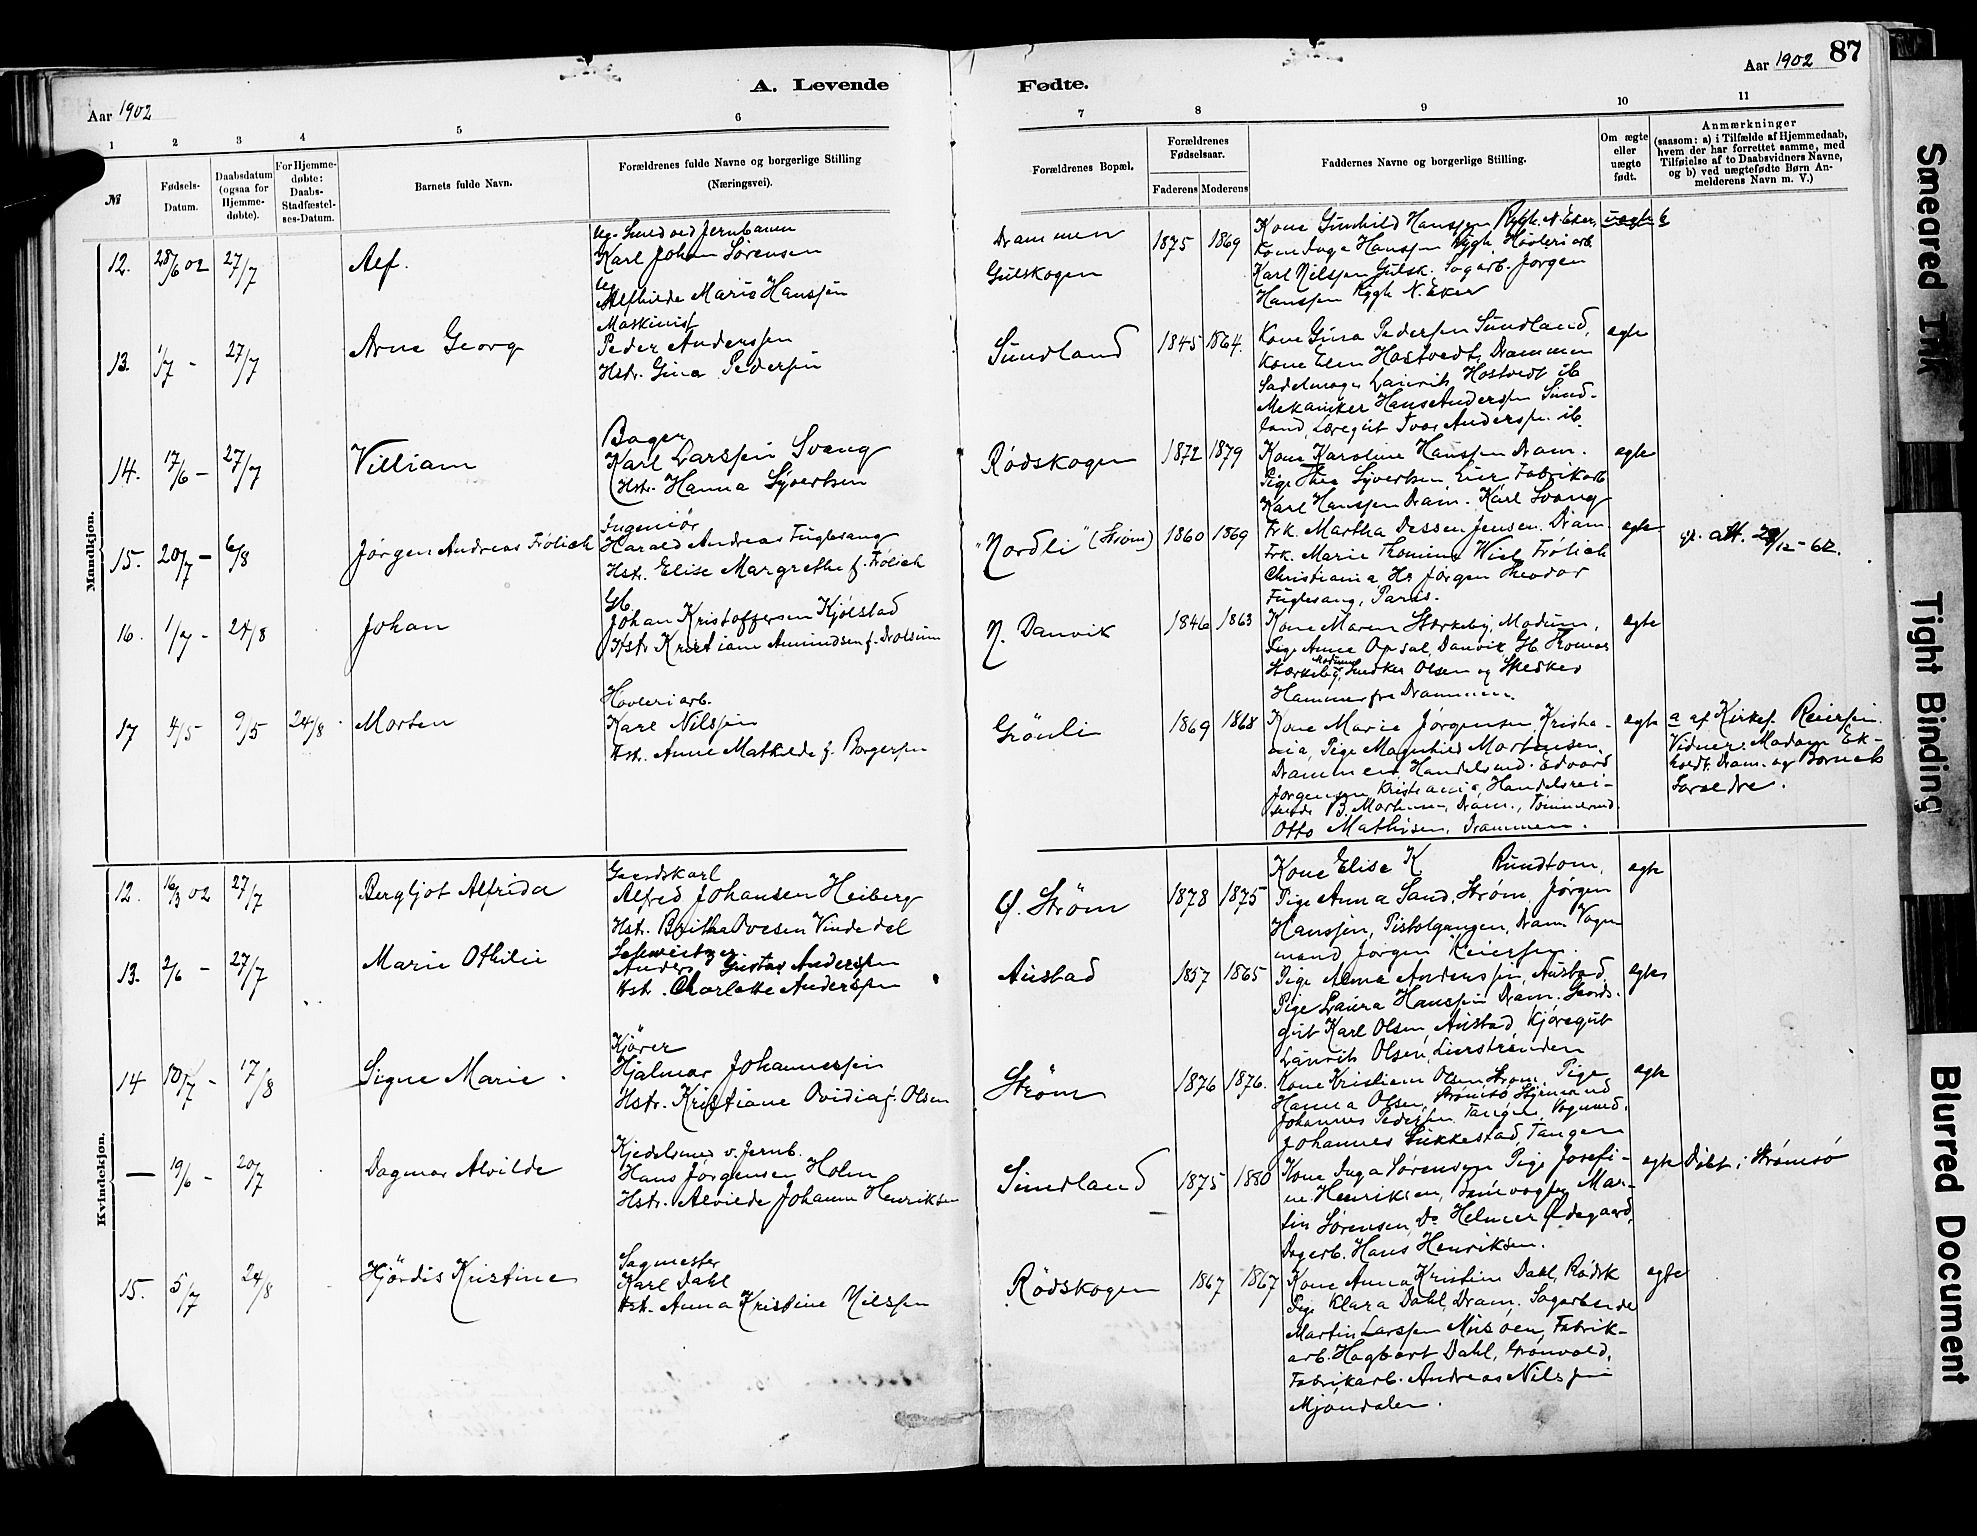 87
Aar 1902
Aar 1902
A. Levende
Fødte.
1 2 3 4 5 6 7 8 9 10 11
№
Fødsels-
Datum.
Daabsdatum
(ogsaa for
Hjemme-
døbte).
For Hjemme-
døbte:
Daabs-
Stadfæstel-
ses-Datum.
Barnets fulde Navn.
Forældrenes fulde Navne og borgerlige Stilling
(Næringsvei).
Forældrenes Bopæl.
Forældrenes
Fødselsaar.
Faderens Moderens
Faddernes Navne og borgerlige Stilling.
Om ægte
eller
uægte
født.
Anmærkninger
(saasom: a) i Tilfælde af Hjemmedaab,
hvem der har forrettet samme, med
Tilføielse af to Daabsvidners Navne,
og b) ved uægtefødte Børn An-
melderens Navn m. V.)
Mandkjøn.
12. 28/6 02 27/7
Alf.
Ug. Smed ved Jernbanen
Karl Johan Sørensen
Ug.
Alfhilde Marie Hanssen
Drammen
Gulskogen
1875 1869
Kone Gunhild Hanssen Rygh N. Eker,
Kone Inga Hanssen Rygh Høvleriarb.
Karl Nilssen Gulsk. Sagarb. Jørgen
Hanssen Rygh N. Eker
uægte b
13. 1/7 - 27/7
Arne Georg
Maskinist
Peder Anderssen
Hstr. Gina Pedersen
Sundland
1845 1864.
Kone Gina Pedersen Sundland,
Kone Elen Hostvedt, Drammen
Sadelmager Lauritz Hostvedt ib
Mekaniker Hans Anderssen Sund-
land, Læregut Ivar Anderssen ib.
egte
14. 17/6 - 27/7
Villiam
Bager
Karl Larssen Svang
Hstr. Hanna Syvertsen
Rødskogen
1872 1879
Kone Karoline Hanssen Dram.
Pige Thea Syvertsen, Lier Fabrikarb
Karl Hanssen Dram. Karl Svang
egte
15. 20/7 - 6/8
Jørgen Andreas Frølich
Ingeniør
Harald Andreas Fuglesang
Hstr. Elise Margrethe f. Frølich
"Nordli" (Strøm)
1860 1869
Frk. Martha Dessen Jensen. Dram.
Frk. Marie Thomine Wiel Frølich
Christiania, Hr Jørgen Theodor
Fuglesang, Paris.
egte
att.
16. 1/7 - 24/8
Johan
Gb.
Johan Kristoffersen Kjølstad
Hstr Kristiane Amundsen f. Drolsum
N. Danvik
1846 1863
Kone Maren Stærkeby, Modum,
Pige Anne Opsal, Danvik, Gb Thomas
Stærkeby, Modum Snedker Olsen og Snedker
Hammer fra Drammen.
egte
17 4/5 - 9/5 24/8
Morten
Høvleriarb.
Karl Nilssen
Hst. Anne Mathilde f. Borgersen
Grønli
1869 1868
Kone Marie Jørgensen Kristia-
nia, Pige Magnhild Mortensen,
Drammen, Handelsmd. Edvard
Jørgensen, Kristiania, Handelsrei-
sende B. Mortensen, Dram., Tømmermd.
Otto Mathisen, Drammen.
egte
a af Kirkes. Reiersen.
Vidner: Madam Ek-
holdt, Dram. og Barnets
Forældre.
Kvindekjøn.
12. 16/3 02 27/7
Bergljot Alfrida
Gaardskarl
Alfred Johansen Heiberg
Hst. Britha Ovesen Vindedal
Ø. Strøm
1878 1875
Kone Elise K Rundtom,
Pige Anna Sand, Strøm, Jørgen
Hanssen, Pistolgangen, Dram. Vogn
mand Jørgen Reiersen.
egte
13. 2/6 - 27/7
Marie Othilie
Schweitzer
Anders Gustav Anderssen
Hst. Charlotte Anderssen
Austad
1857 1865
Pige Alma Anderssen, Austad,
Pige Laura Hanssen Dram. Gaards-
gut Karl Olsen, Austad, Kjøregut
Laurits Olsen, Lierstranden
egte
14 10/7 - 17/8
Signe Marie
Kjører
Hjalmar Johannessen
Hstr. Kristiane Ovidia f. Olsen
Strøm
1876 1876.
Kone Kristiane Olsen Strøm. Pige
Hanna Olsen, Strømsø Styrmand
Johannes Pedersen Tangen, Vognmd.
Johannes Sukkestad, Tangen
egte
— 19/6 - 20/7
Dagmar Alvilde
Kjedelsmed v. Jernb.
Hans Jørgensen Holm
Hstr. Alvilde Johanne Henriksen
Sundland
1875 1880
Kone Inga Sørensen, Pige Josefi-
ne Henriksen, Banevogter Mar-
tin Sørensen, Do Helmer Ødegaard,
Dagarb. Hans Henriksen.
egte
Døbt i Strømsø
15. 5/7 24/8
Hjördis Kristine
Sagmester
Karl Dahl
Hst. Anna Kristine Nilssen
Rødskogen
1867 1867
Kone Anna Kristine Dahl, Rødsk
Pige Klara Dahl, Dram. Sagarbeider
Martin Larssen Musøen, Fabrik-
arb. Hagbart Dahl, Grønvold,
Fabrikarb. Andreas Nilssen
Mjøndalen.
egte
Smeared Ink
Tight Binding
Blurred Document